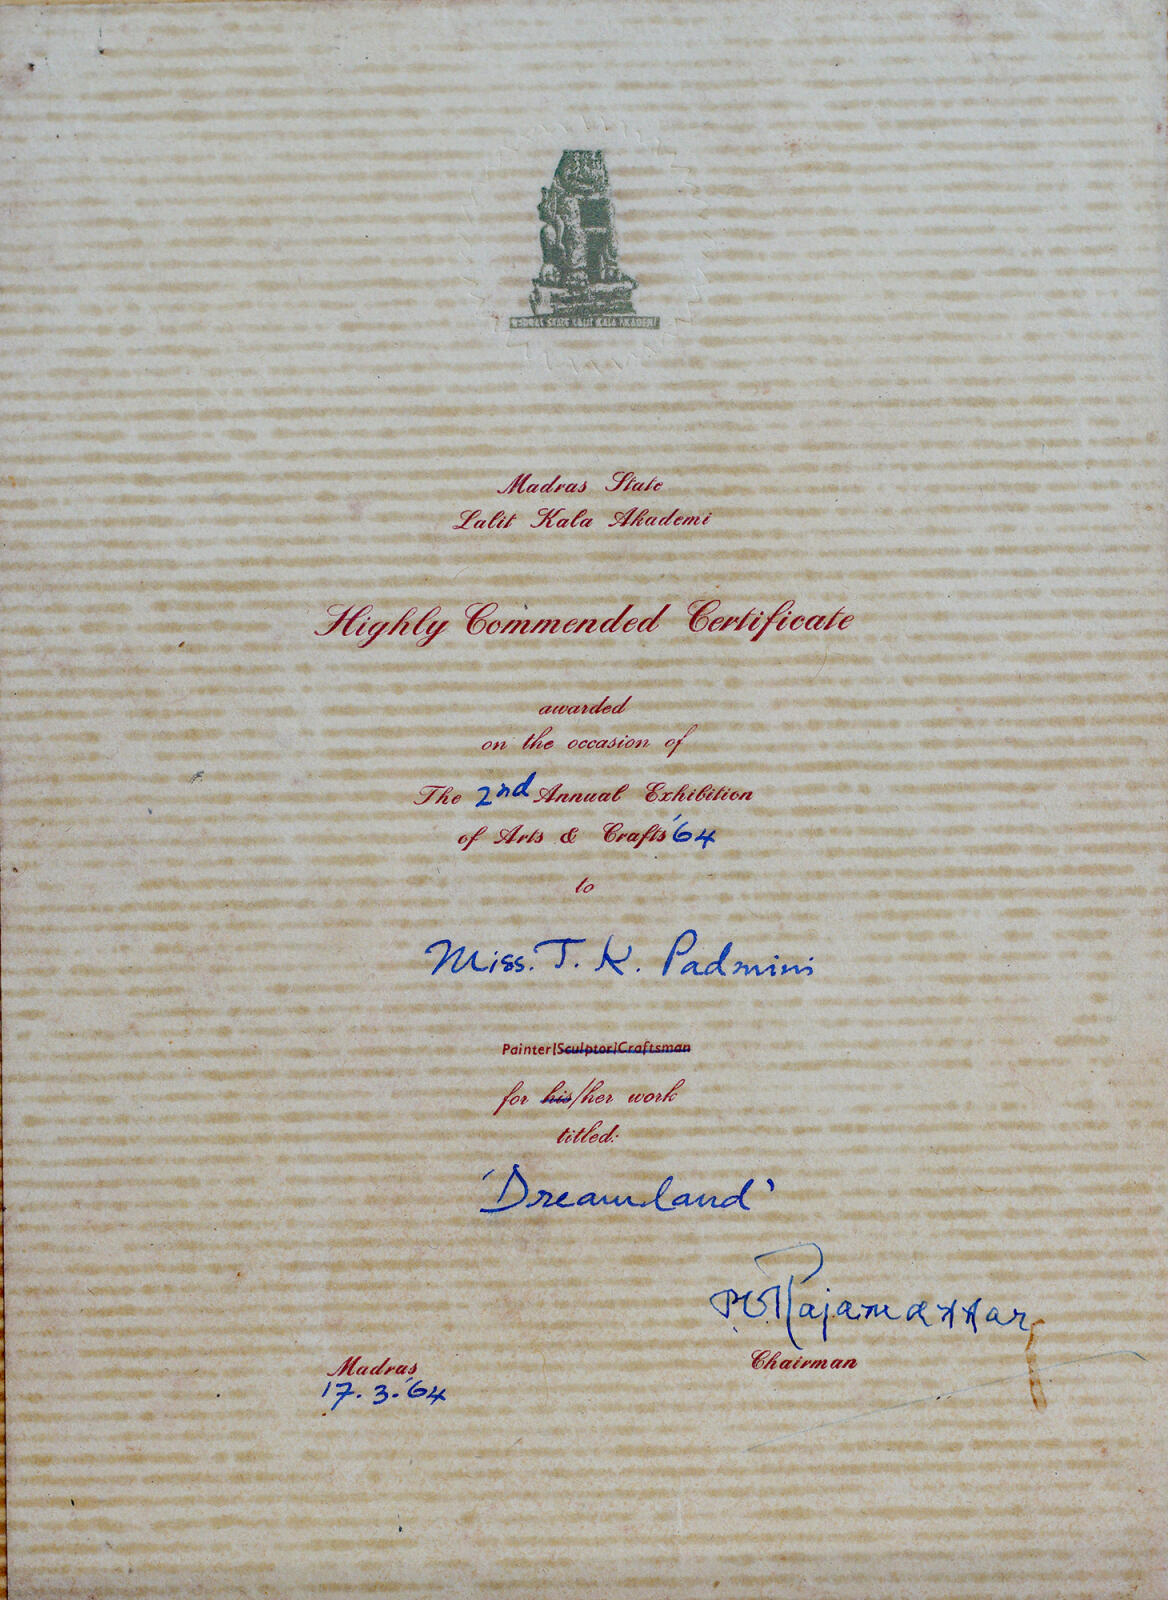 MADRAS STATE LALIT KALA AKADEMI
Madras State
Lalit Kala Akademi
Highly Commended Certificate
awarded
on the occasion of
The 2nd Annual Exhibition
of Arts & Crafts '64
to
Miss. T. K. Padmini
Painter|Sculptor|Craftsman
for his/her work
titled:
'Dreamland'
P.V. Rajamannar
Chairman
Madras
17.3.'64